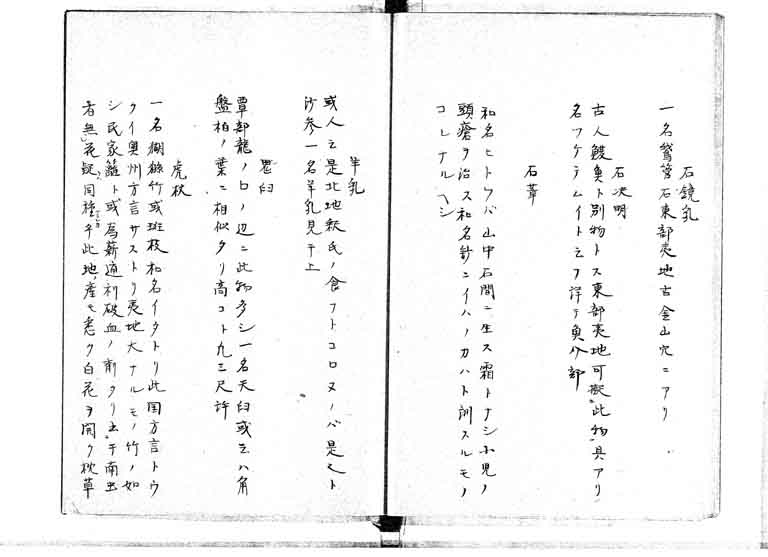 石鏡乳
一名鵞管石東部夷地古金山穴ニアリ
石决明
古人鰒魚ト別物トス東部夷地可擬此物具アリ
名フケテムイト云フ詳テ魚介部
石葦
和名ヒトツバ山中石間ニ生ス霜トナシ小児ノ
頭瘡ヲ治ス和名鈔ニイハノカハト訓スルモノ
コレナルヘシ
羊乳
或人云是北地秡氏ノ食フトコロヌノバ是ヒト
沙参一名羊乳見于上
鬼臼
覃部龍ノ口ノ辺ニ此物多シ一名天臼或云ハ角
盤柏ノ葉ニ相似タリ高コト九三尺許
虎杖
一名斑杖和名イタトリ此国方言トウ
クイ奥州方言サストリ夷地大ナルモノ竹ノ如
シ民家籬ト或爲薪通利破血ノ剤タリ南出
者無花疑同種乎此地ノ産ハ悉ク白花ヲ開ク秋草